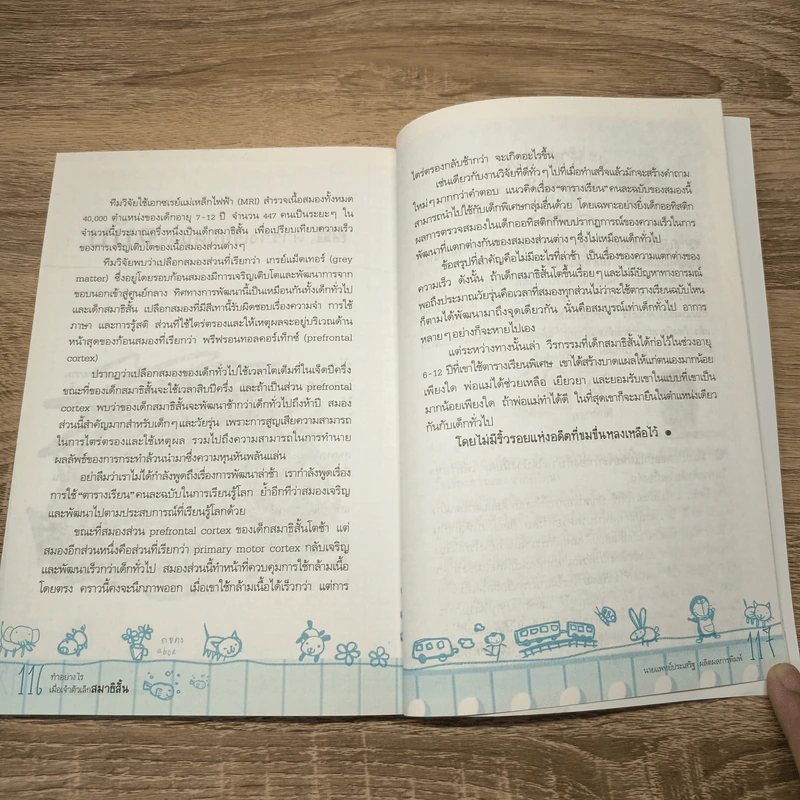 ทีมวิจัยใช้เอกซเรย์แม่เหล็กไฟฟ้า (MRI) สำรวจเนื้อสมองทั้งหมด
40,000 ตำแหน่งของเด็กอายุ 7-12 ปี จำนวน 447 คนเป็นระยะๆ ใน
จำนวนนี้ประมาณครึ่งหนึ่งเป็นเด็กสมาธิสั้น เพื่อเปรียบเทียบความเร็ว
ของการเจริญเติบโตของเนื้อสมองส่วนต่างๆ
ทีมวิจัยพบว่าเปลือกสมองส่วนที่เรียกว่า เกรย์แม็ตเทอร์ (grey
matter) ซึ่งอยู่โดยรอบก้อนสมองมีการเจริญเติบโตและพัฒนาการจาก
ขอบนอกเข้าสู่ศูนย์กลาง ทิศทางการพัฒนานี้เป็นเหมือนกันทั้งเด็กทั่วไป
และเด็กสมาธิสั้น เปลือกสมองที่มีสีเทานี้รับผิดชอบเรื่องความจำ การใช้
ภาษา และการรู้สติ ส่วนที่ใช้ไตร่ตรองและให้เหตุผลจะอยู่บริเวณด้าน
หน้าสุดของก้อนสมองที่เรียกว่า พรีฟรอนทอลคอร์เท็กซ์ (prefrontal
cortex)
ปรากฏว่าเปลือกสมองของเด็กทั่วไปใช้เวลาโตเต็มที่ในเจ็ดปีครึ่ง
ขณะที่ของเด็กสมาธิสั้นจะใช้เวลาสิบปีครึ่ง และถ้าเป็นส่วน prefrontal
cortex พบว่าของเด็กสมาธิสั้นจะพัฒนาช้ากว่าเด็กทั่วไปถึงห้าปี สมอง
ส่วนนี้สำคัญมากสำหรับเด็กๆ และวัยรุ่น เพราะการสูญเสียความสามารถ
ในการไตร่ตรองและใช้เหตุผล รวมไปถึงความสามารถในการทำนาย
ผลลัพธ์ของการกระทำล้วนนำมาซึ่งความหุนหันพลันแล่น
อย่าลืมว่าเราไม่ได้กำลังพูดถึงเรื่องการพัฒนาล่าช้า เรากำลังพูดเรื่อง
การใช้ "ตารางเรียน" คนละฉบับในการเรียนรู้โลก ย้ำอีกทีว่าสมองเจริญ
และพัฒนาไปตามประสบการณ์ที่เรียนรู้โลกด้วย
ขณะที่สมองส่วน prefrontal cortex ของเด็กสมาธิสั้นโตช้า แต่
สมองอีกส่วนหนึ่งคือส่วนที่เรียกว่า primary motor cortex กลับเจริญ
และพัฒนาเร็วกว่าเด็กทั่วไป สมองส่วนนี้ทำหน้าที่ควบคุมการใช้กล้ามเนื้อ
โดยตรง คราวนี้คงจะนึกภาพออก เมื่อเขาใช้กล้ามเนื้อได้เร็วกว่า แต่การ
ก ข ค ง
a b c d
116
ทำอย่างไร
เมื่อเจ้าตัวเล็กสมาธิสั้น
ไตร่ตรองกลับช้ากว่า จะเกิดอะไรขึ้น
เช่นเดียวกับงานวิจัยที่ดีทั่วๆ ไปที่เมื่อทำเสร็จแล้วมักจะสร้างคำถาม
ใหม่ๆ มากกว่าคำตอบ แนวคิดเรื่อง "ตารางเรียน" คนละฉบับของสมองนี้
สามารถนำไปใช้กับเด็กพิเศษกลุ่มอื่นด้วย โดยเฉพาะอย่างยิ่งเด็กออทิสติก
ผลการตรวจสมองในเด็กออทิสติกก็พบปรากฏการณ์ของความเร็วในการ
พัฒนาที่แตกต่างกันของสมองส่วนต่างๆ ซึ่งไม่เหมือนเด็กทั่วไป
ข้อสรุปที่สำคัญคือไม่มีอะไรที่ล่าช้า เป็นเรื่องของความแตกต่างของ
ความเร็ว ดังนั้น ถ้าเด็กสมาธิสั้นโตขึ้นเรื่อยๆ และไม่มีปัญหาทางอารมณ์
พอถึงประมาณวัยรุ่นคือเวลาที่สมองทุกส่วนไม่ว่าจะใช้ตารางเรียนฉบับไหน
ก็ตามได้พัฒนามาถึงจุดเดียวกัน นั่นคือสมบูรณ์เท่าเด็กทั่วไป อาการ
หลายๆ อย่างก็จะหายไปเอง
แต่ระหว่างทางนั้นเล่า วีรกรรมที่เด็กสมาธิสั้นได้ก่อไว้ในช่วงอายุ
6-12 ปีที่เขาใช้ตารางเรียนพิเศษ เขาได้สร้างบาดแผลให้แก่ตนเองมากน้อย
เพียงใด พ่อแม่ได้ช่วยเหลือ เยียวยา และยอมรับเขาในแบบที่เขาเป็น
มากน้อยเพียงใด ถ้าพ่อแม่ทำได้ดี ในที่สุดเขาก็จะมายืนในตำแหน่งเดียว
กันกับเด็กทั่วไป
โดยไม่มีริ้วรอยแห่งอดีตที่ขมขื่นหลงเหลือไว้ ●
นายแพทย์ประเสริฐ ผลิตผลการพิมพ์
117